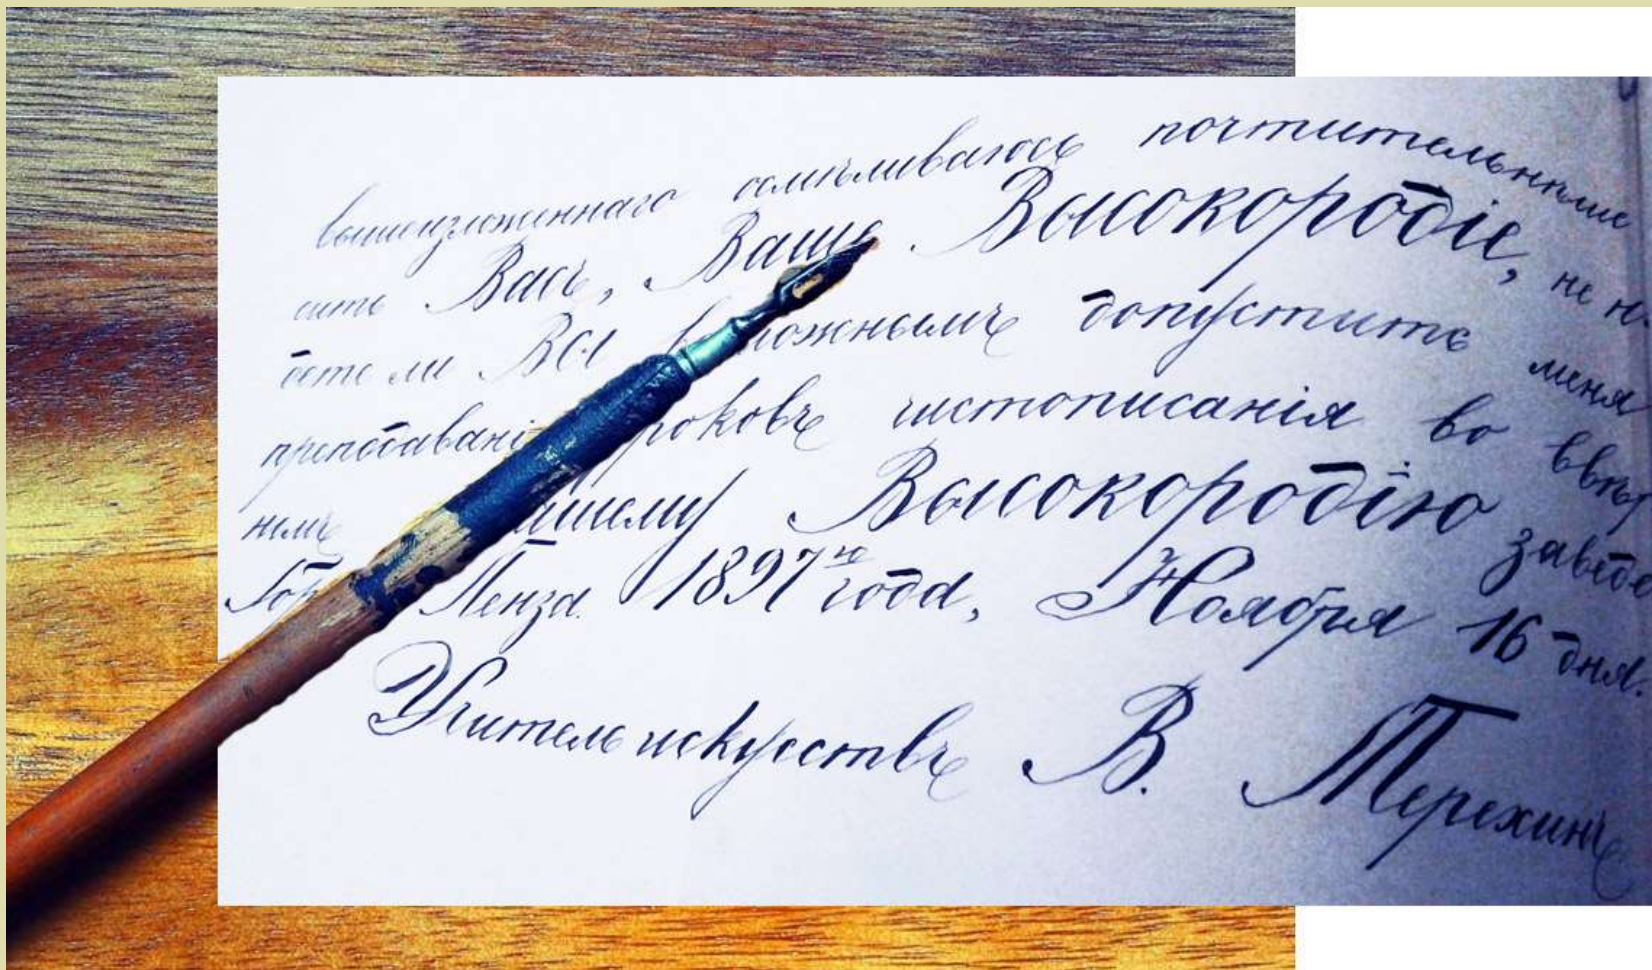 вышеизложеннаго осмѣливаюсь почтительнѣйше
сить Васъ, Ваше Высокородіе, не н
дете ли Вы возможнымъ допустить меня
преподаванію уроковъ чистописанія во ввѣр
нымъ Вашему Высокородію заведе
Гор Пенза. 1897 го года, Ноября 16 дня.
Учитель искусствъ В. Терехинъ